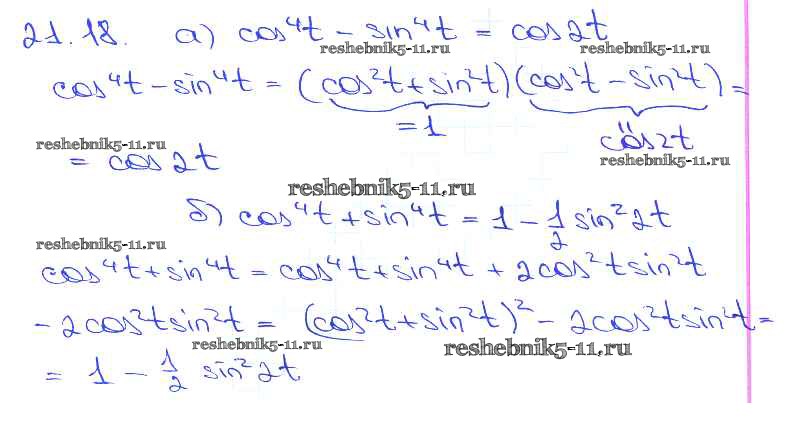 21.18. а) cos⁴t − sin⁴t = cos2t
reshebnik5-11.ru reshebnik5-11.ru
cos⁴t − sin⁴t = (cos²t + sin²t)(cos²t − sin²t) =
= 1 cos2t
reshebnik5-11.ru reshebnik5-11.ru
= cos2t
reshebnik5-11.ru
б) cos⁴t + sin⁴t = 1 − 1/2 sin²2t
reshebnik5-11.ru
cos⁴t + sin⁴t = cos⁴t + sin⁴t + 2cos²t sin²t
− 2cos²t sin²t = (cos²t + sin²t)² − 2cos²t sin²t =
reshebnik5-11.ru reshebnik5-11.ru
= 1 − 1/2 sin²2t